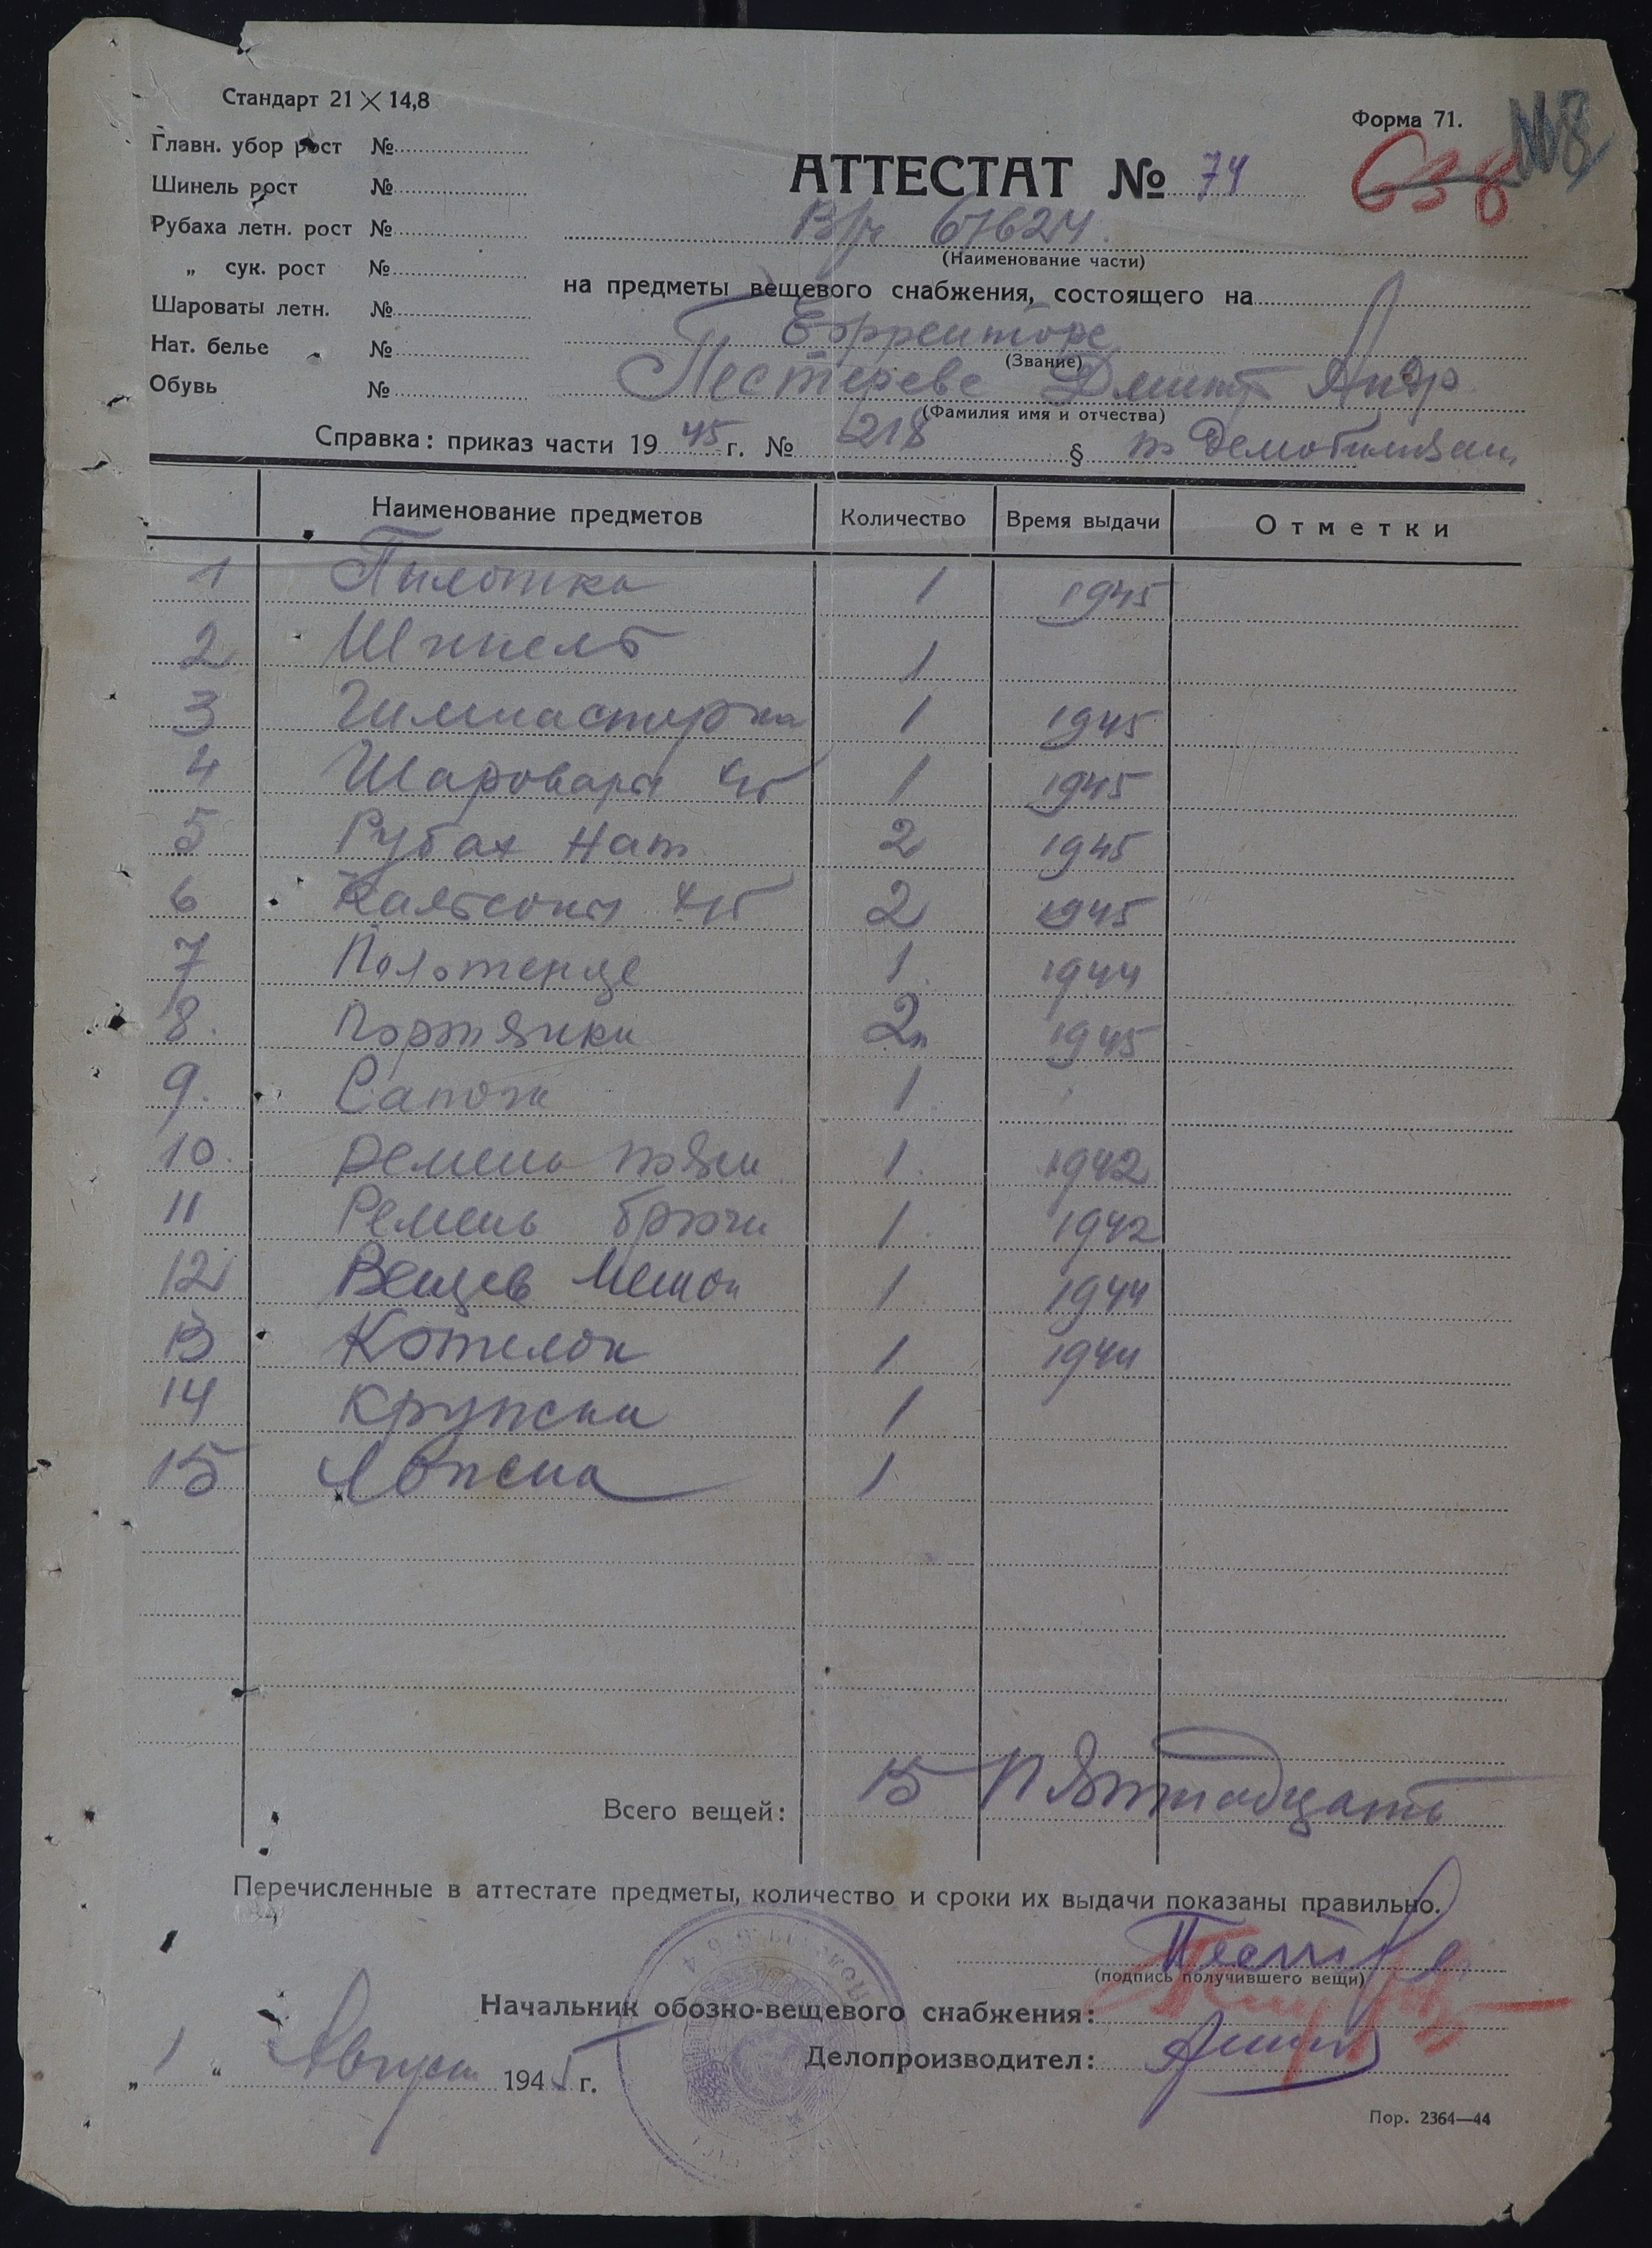 Стандарт 21 × 14,8
Форма 71.
№8
638
Главн. убор рост №
Шинель рост №
Рубаха летн. рост №
„ сук. рост №
Шароваты летн. №
Нат. белье №
Обувь №
АТТЕСТАТ № 74
В/ч 67624.
(Наименование части)
на предметы вещевого снабжения, состоящего на
Ефрейторе
(Звание)
Пестереве Дмитр Андр
(Фамилия имя и отчества)
Справка: приказ части 1945 г. № 218 § по Демобилизац.
Наименование предметов Количество Время выдачи Отметки
1 Пилотка 1 1945
2 Шинель 1
3 Гимнастерка 1 1945
4 Шаровары х/б 1 1945
5 Рубах Нат 2 1945
6 Кальсоны х/б 2 1945
7 Полотенце 1 1944
8. Портянки 2п 1945
9. Сапоги 1
10. Ремень поясн 1. 1942
11 Ремень брючн 1. 1942
12 Вещев Мешок 1. 1944
13 Котелок 1 1944
14 Кружка 1
15 Ложка 1
Всего вещей: 15 Пятнадцать
Перечисленные в аттестате предметы, количество и сроки их выдачи показаны правильно.
(подпись получившего вещи)
Начальник обозно-вещевого снабжения:
Делопроизводител:
„ 1 “ Август 1945 г.
Пор. 2364—44